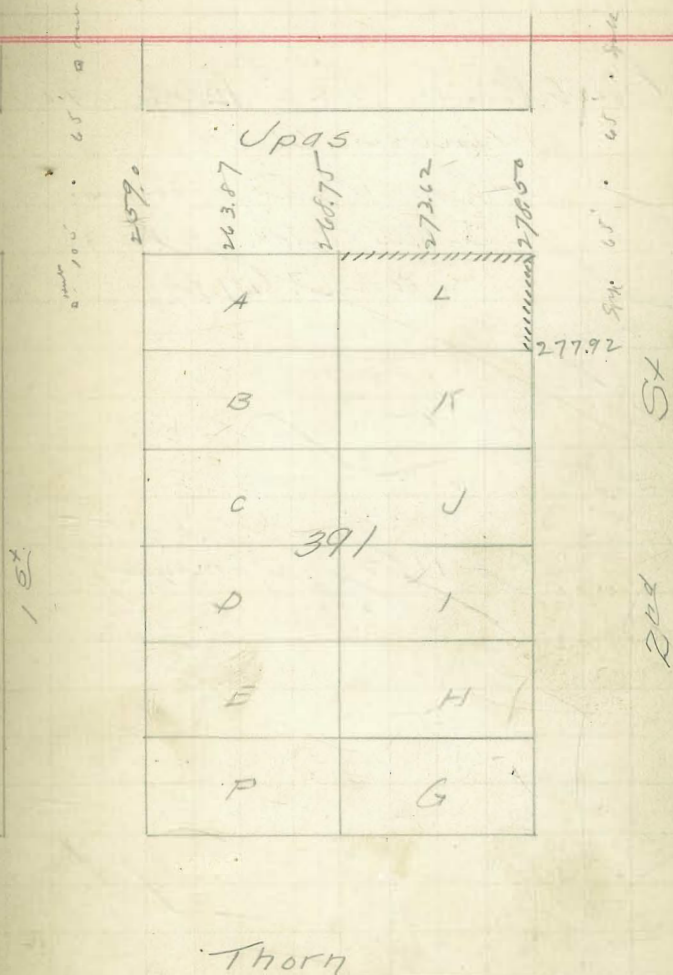 Upas
259.0
263.87
268.75
273.62
278.50
A
L
277.92
B
K
C
J
391
D
I
E
H
F
G
1 St.
2nd St
65'
100
65'
65'
Thorn